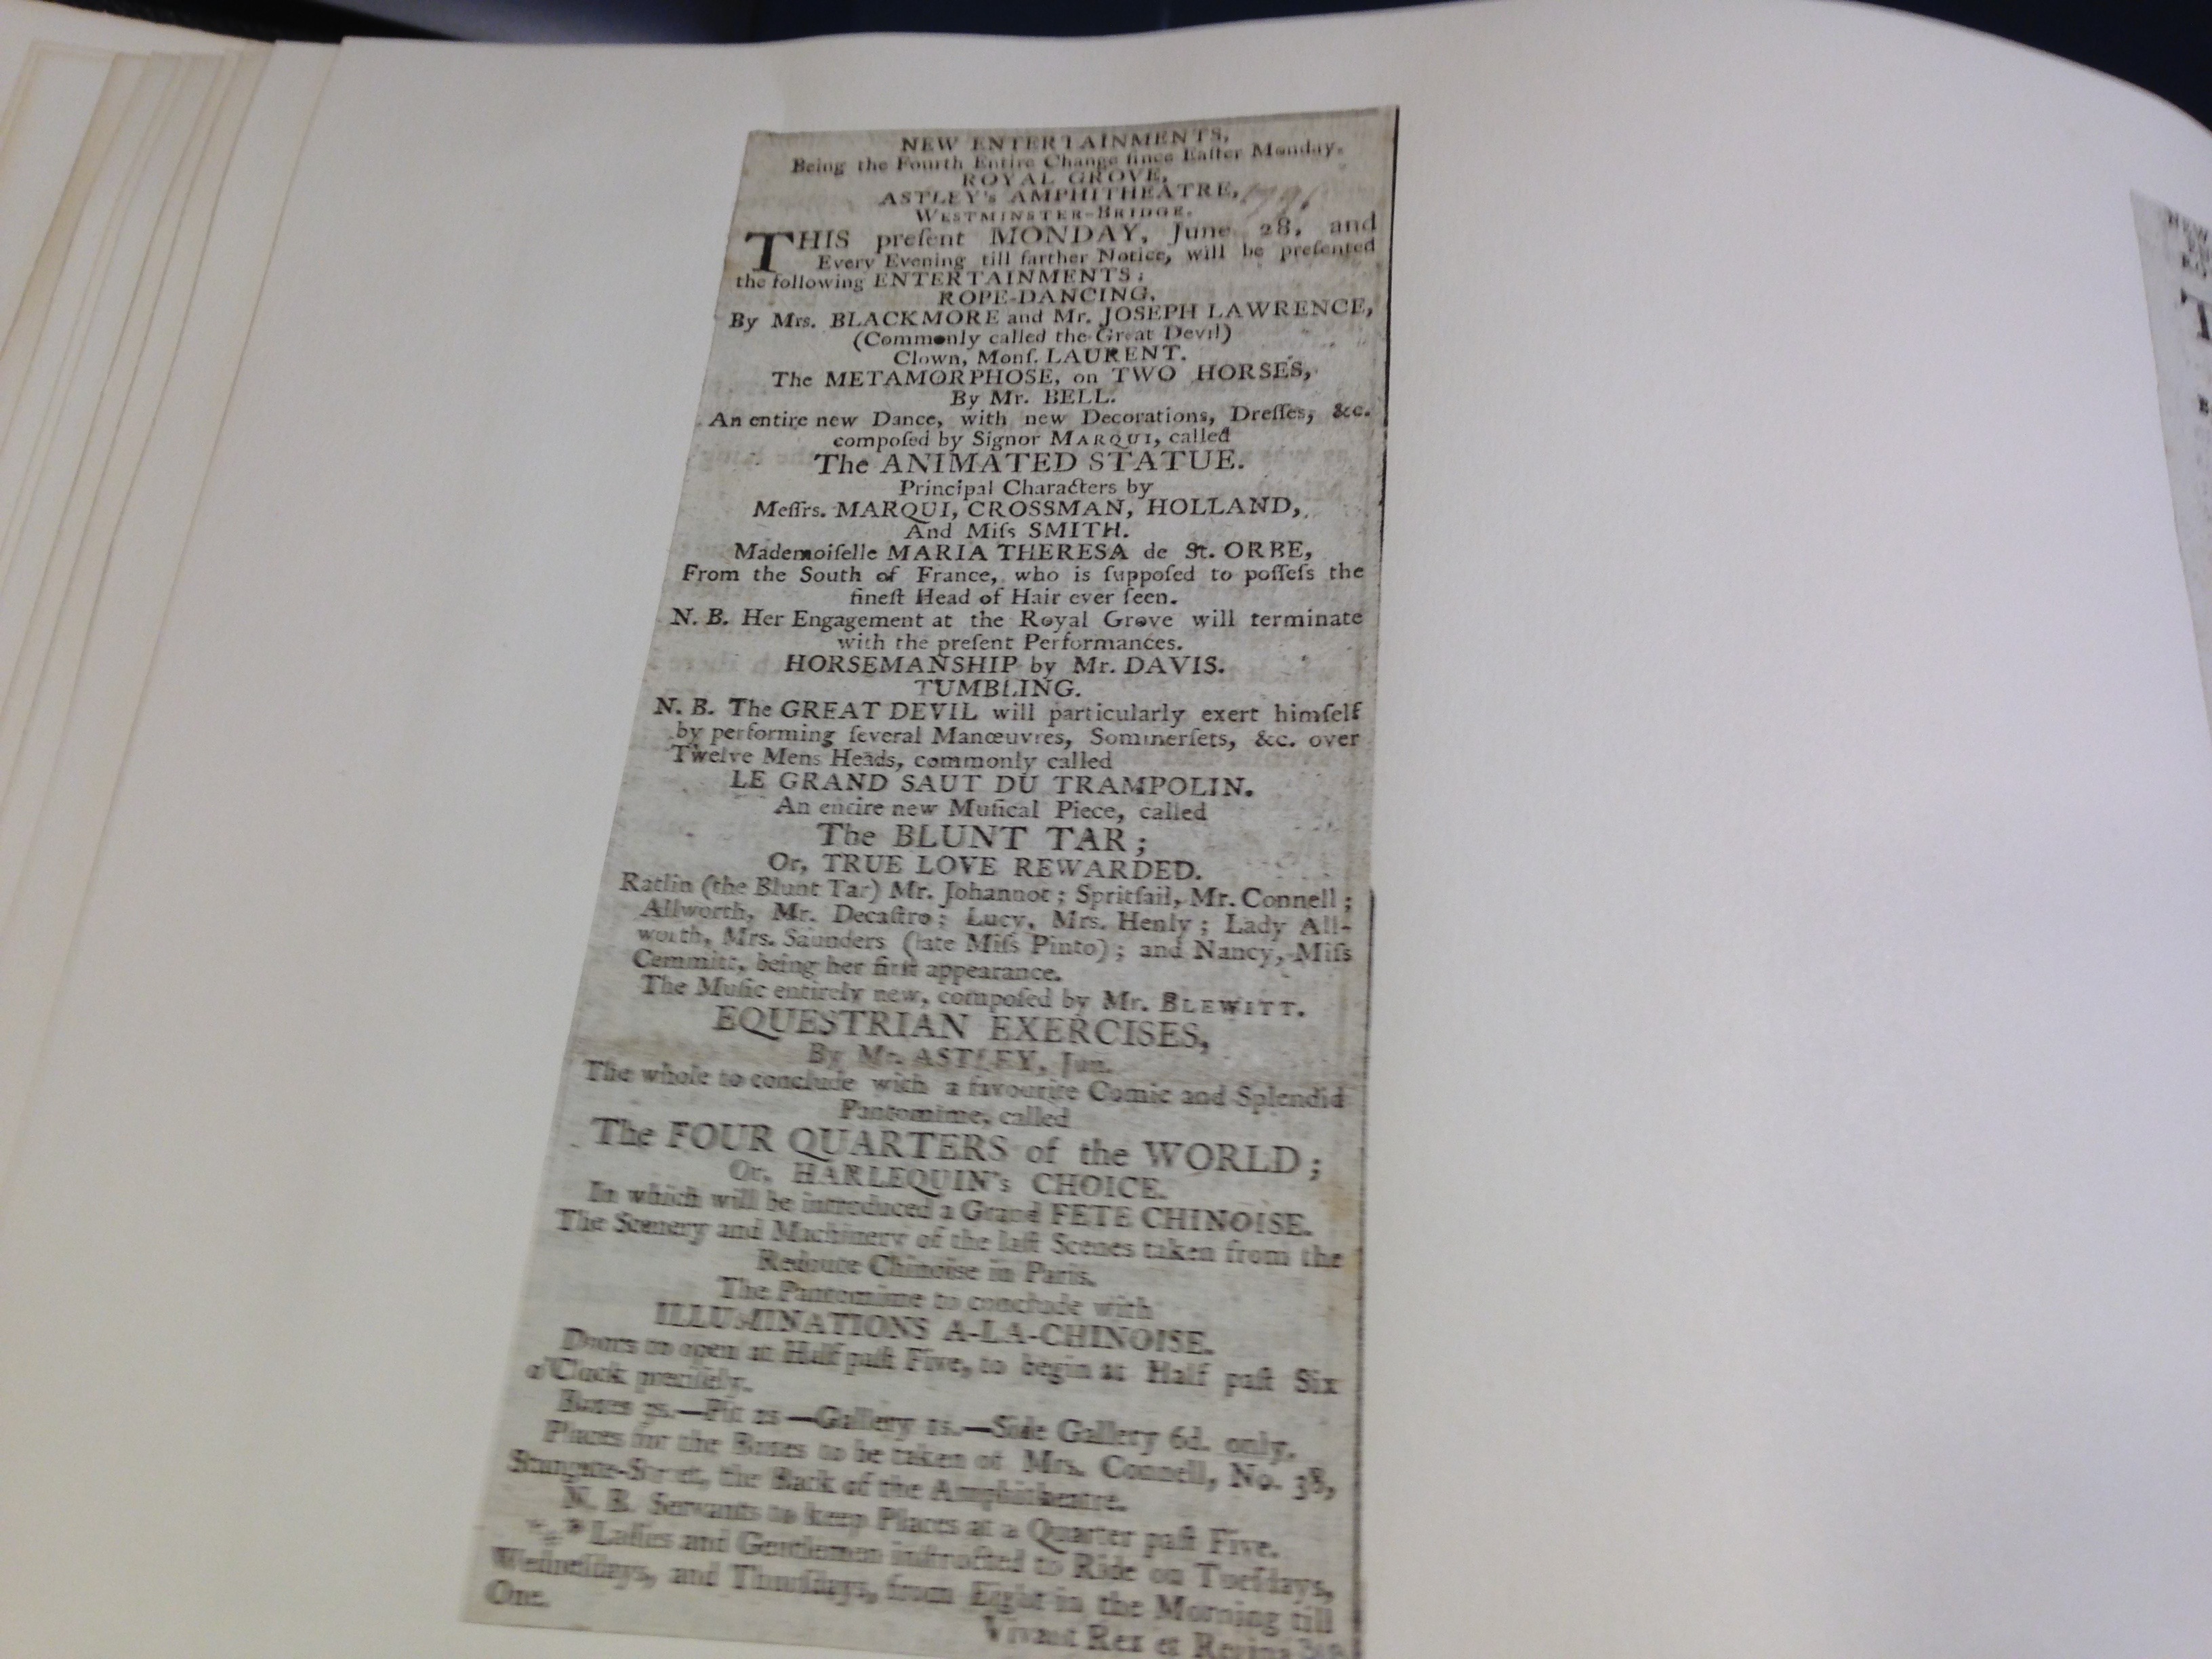 NEW ENTERTAINMENTS,
Being the Fourth Entire Change ſince Eaſter Monday.
ROYAL GROVE,
ASTLEY's AMPHITHEATRE,
WESTMINSTER-BRIDGE.
THIS preſent MONDAY, June 28, and
Every Evening till farther Notice, will be preſented
the following ENTERTAINMENTS:
ROPE-DANCING,
By Mrs. BLACKMORE and Mr. JOSEPH LAWRENCE,
(Commonly called the Great Devil)
Clown, Monſ. LAURENT.
The METAMORPHOSE, on TWO HORSES,
By Mr. BELL.
An entire new Dance, with new Decorations, Dreſſes, &c.
compoſed by Signor MARQUI, called
The ANIMATED STATUE.
Principal Characters by
Meſſrs. MARQUI, CROSSMAN, HOLLAND,
And Miſs SMITH.
Mademoiſelle MARIA THERESA de St. ORBE,
From the South of France, who is ſuppoſed to poſſeſs the
fineſt Head of Hair ever ſeen.
N. B. Her Engagement at the Royal Grove will terminate
with the preſent Performances.
HORSEMANSHIP by Mr. DAVIS.
TUMBLING.
N. B. The GREAT DEVIL will particularly exert himſelf
by performing ſeveral Manœuvres, Sommerſets, &c. over
Twelve Mens Heads, commonly called
LE GRAND SAUT DU TRAMPOLIN.
An entire new Muſical Piece, called
The BLUNT TAR;
Or, TRUE LOVE REWARDED.
Ratlin (the Blunt Tar) Mr. Johannot; Spritſail, Mr. Connell;
Allworth, Mr. Decaſtro; Lucy, Mrs. Henly; Lady All-
worth, Mrs. Saunders (late Miſs Pinto); and Nancy, Miſs
Cemmitt, being her firſt appearance.
The Muſic entirely new, compoſed by Mr. BLEWITT.
EQUESTRIAN EXERCISES,
By Mr. ASTLEY, Jun.
The whole to conclude with a favourite Comic and Splendid
Pantomime, called
The FOUR QUARTERS of the WORLD;
Or, HARLEQUIN's CHOICE.
In which will be introduced a Grand FETE CHINOISE.
The Scenery and Machinery of the laſt Scenes taken from the
Redoute Chinoise in Paris.
The Pantomime to conclude with
ILLUMINATIONS A-LA-CHINOISE.
Doors to open at Half paſt Five, to begin at Half paſt Six
o'Clock preciſely.
Boxes 3s.—Pit 2s—Gallery 1s.—Side Gallery 6d. only.
Places for the Boxes to be taken of Mrs. Connell, No. 38,
Stangate-Street, the Back of the Amphitheatre.
N. B. Servants to keep Places at a Quarter paſt Five.
*⁎* Ladies and Gentlemen inſtructed to Ride on Tueſdays,
Wedneſdays, and Thurſdays, from Eight in the Morning till
One.
Vivant Rex et Regina